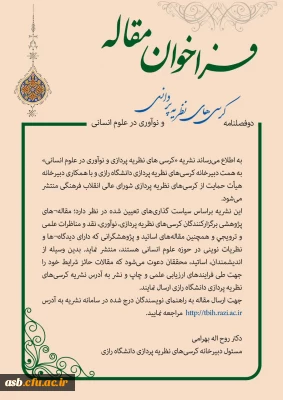 فراخوان مقاله
دوفصلنامه کرسی‌های نظریه‌پردازی و نوآوری در علوم انسانی
به اطلاع می‌رساند نشریه «کرسی های نظریه پردازی و نوآوری در علوم انسانی»
به همت دبیرخانه کرسی‌های نظریه پردازی دانشگاه رازی و با همکاری دبیرخانه
هیأت حمایت از کرسی‌های نظریه پردازی شورای عالی انقلاب فرهنگی منتشر
می‌شود.
این نشریه براساس سیاست گذاری‌های تعیین شده در نظر دارد؛ مقاله¬های
پژوهشی برگزارکنندگان کرسی‌های نظریه پردازی، نوآوری، نقد و مناظرات علمی
و ترویجی و همچنین مقاله‌های اساتید و پژوهشگرانی که دارای دیدگاه¬ها و
نظریات نوینی در حوزه علوم انسانی هستند، منتشر نماید. بدین وسیله از
اندیشمندان، اساتید، محققان دعوت می‌شود که مقالات حائز شرایط خود را
جهت طی فرایندهای ارزیابی علمی و چاپ و نشر به آدرس نشریه کرسی‌های
نظریه پردازی دانشگاه رازی ارسال نمایند.
جهت ارسال مقاله به راهنمای نویسندگان درج شده در سامانه نشریه به آدرس
http://tbih.razi.ac.ir مراجعه نمایید.
دکتر روح اله بهرامی
مسئول دبیرخانه کرسی‌های نظریه پردازی دانشگاه رازی
asb.cfu.ac.ir